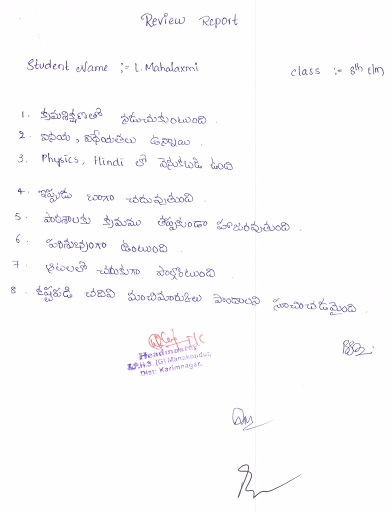 Review Report
Student Name :- L. Mahalaxmi class :- 8th E/M
1. క్రమశిక్షణతో నడుచుకుంటుంది.
2. వినయ, విధేయతలు ఉన్నాయి.
3. Physics, Hindi లో వెనుకబడి ఉంది
4. ఇప్పుడు బాగా చదువుతుంది.
5. పాఠశాలకు క్రమము తప్పకుండా హాజరవుతుంది.
6. పరిశుభ్రంగా ఉంటుంది.
7. ఆటలలో చురుకుగా పాల్గొంటుంది.
8. కష్టపడి చదివి మంచిమార్కులు పొందాలని సూచించడమైంది.
I/C
Headmaster
Z.P.H.S. (G) Manakondur,
Dist: Karimnagar.